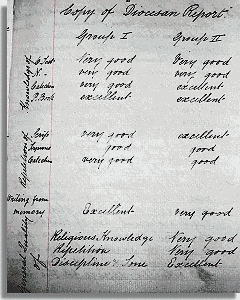 Copy of Diocesan Report.
Group I Group II
Knowledge of
O. Test Very good Very good
N. " very good very good
Catechism very good excellent
P. Book excellent excellent
Repetition of
Scrip. very good excellent
Hymns good good
Catechism very good good
Writing from memory Excellent very good
General
of
Religious Knowledge Very good
Repetition Very good
Discipline & Tone Excellent